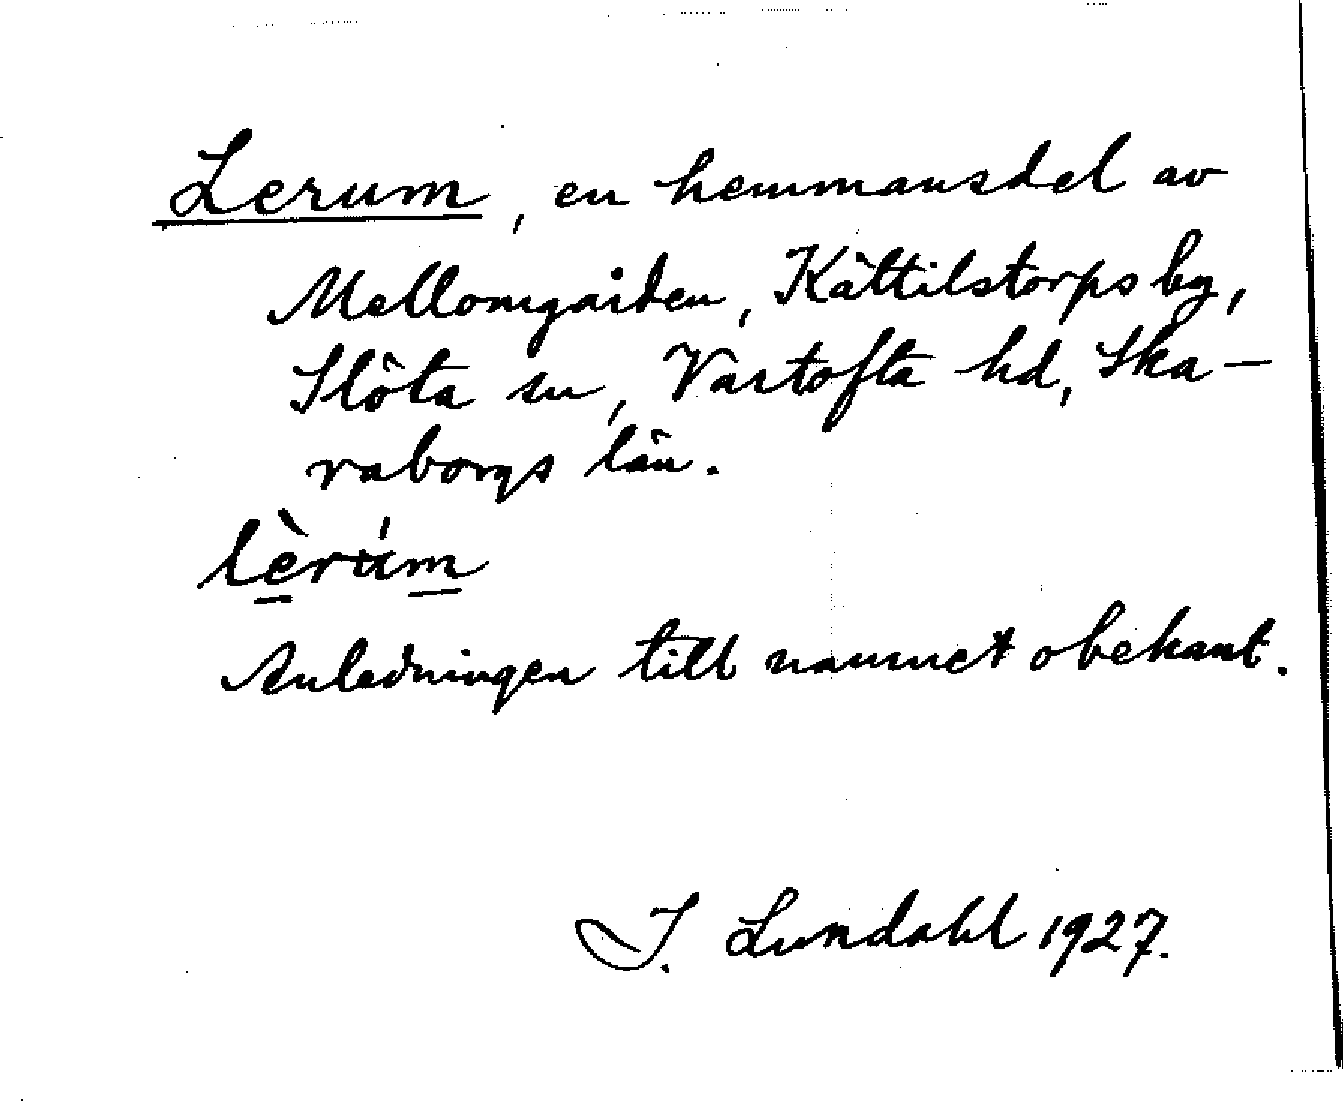 Lerum, en hemmansdel av
Mellomgården, Kättilstorps by,
Slöta sn, Vartofta hd, Ska-
raborgs län.
lèrúm
Anledningen till namnet obekant.
I. Lundahl 1927.